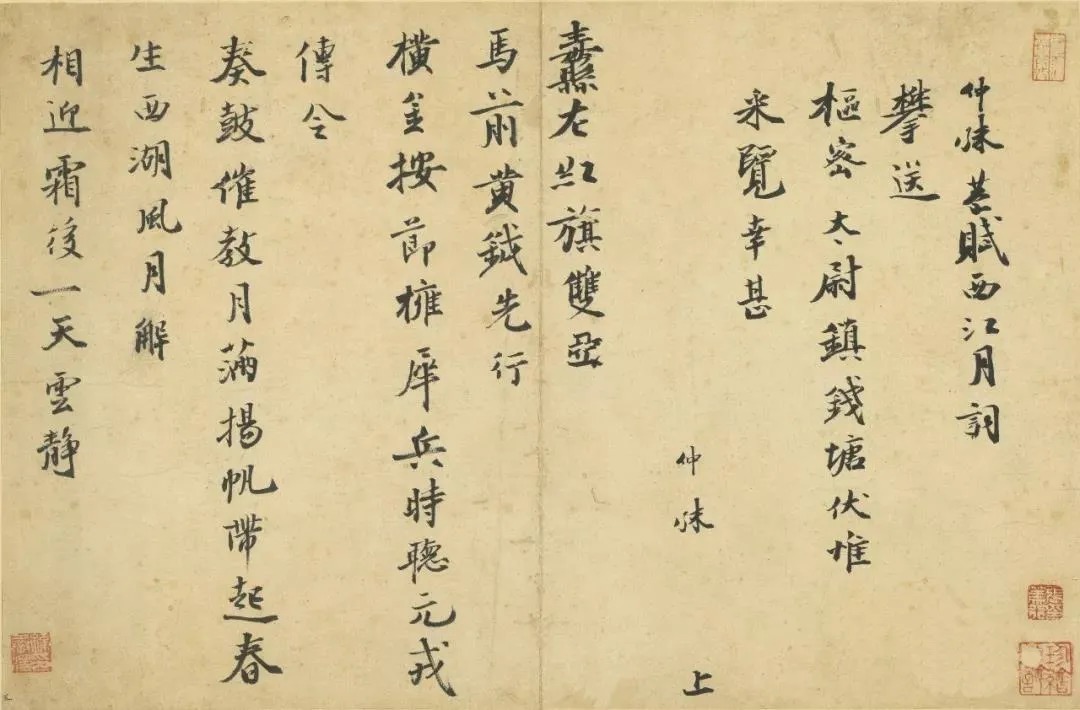 仲殊恭賦西江月詞
攀送
樞密大尉鎮錢塘伏惟
采覽幸甚
仲殊 上
纛左紅旗雙亞
馬前黃鉞先行
橫金按節擁犀兵時聽元戎
傳令
奏鼓催教月滿揚帆帶起春
生西湖風月解
相迎霜後一天雲靜